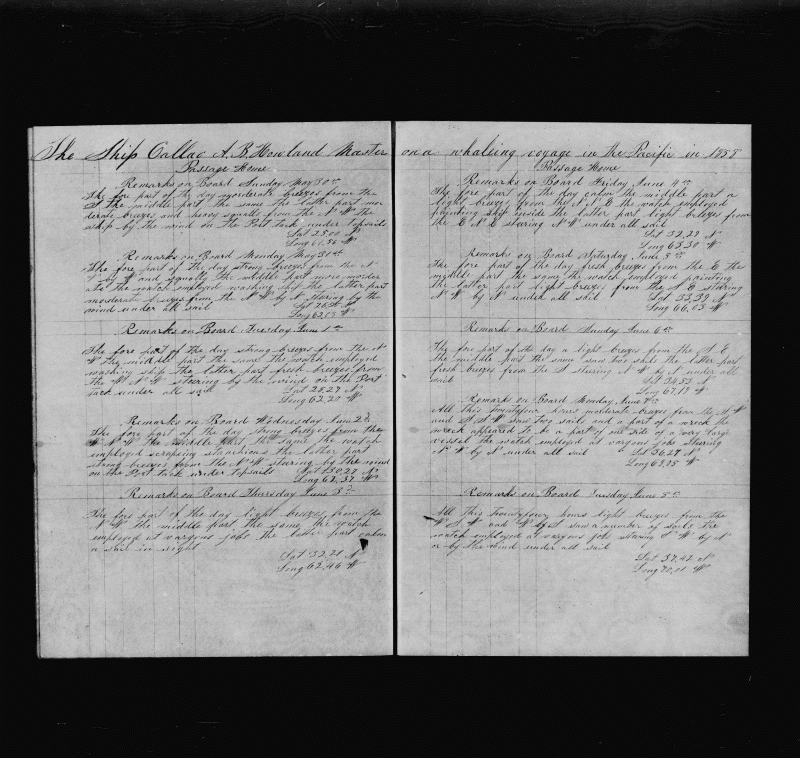 The Ship Callao A. B. Howland Master
Passage Home
Remarks on Board Sunday May 30th
The fore part of the day moderate breezes from the
S the middle part the same the latter part mod
erate breezes and heavy squalls from the N W the
ship by the wind on the Port tack under topsails
Lat 25,00 N
Long 61,54 W
Remarks on Board Monday May 30th
The fore part of the day strong breezes from the N
N by W and squally the middle part more moder
ate the watch employed washing ship the latter part
moderate breezes from the N W by N steering by the
wind under all sail
Lat 26,51 N
Long 62,19 W
Remarks on Board Tuesday June 1st
The fore part of the day strong breezes from the N
W the middle part the same the watch employed
washing ship the latter part fresh breezes from
the W N W steering by the wind on the Port
tack under all sail
Lat 28,29 N
Long 62,20 W
Remarks on Board Wednesday June 2d
The fore part of the day strong breezes from the
W N W the middle part the same the watch
employed scraping stanchions the latter part
strong breezes from the N W steering by the wind
on the Port tack under topsails Lat 30,27 N
Long 62,37 W
Remarks on Board Thursday June 3d
The fore part of the day light breezes from the
N W the middle part the same the watch
employed at varyous jobs the latter part calm
a sail in sight
Lat 32,21 N
Long 62,46 W
on a whaleing voyage in the Pacific in 1858
Passage Home
Remarks on Board Friday June 4th
The fore part of the day calm the middle part a
light breezes from the N E the watch employed
painting ship inside the latter part light breezes from
the E N E stering N W under all sail
Lat 32,29 N
Long 63,50 W
Remarks on Board Saturday June 5th
The fore part of the day fresh breezes from the E the
middle part the same the watch employed painting
the latter part light breezes from the S E stering
N W by N under all sail
Lat 33,39 N
Long 66,03 W
Remarks on Board Sunday June 6th
The fore part of the day a light breezes from the S E
the middle part the same saw two sails the latter part
fresh breezes from the S stering N W by N under all
sail
Lat 34,53 N
Long 67,19 W
Remarks on Board Monday June 7th
All this twentyfour hours moderate breezes from the S W
and S S W saw two sails and a part of a wreck the
wreck appeared to be a part of one side of a very large
vessel the watch employed at varyous jobs stering
N W by N under all sail
Lat 36,27 N
Long 69,05 W
Remarks on Board Tuesday June 8th
All this twentyfour hours light breezes from the
W S W and W by S saw a number of sails the
watch employed at varyous jobs stering N W by N
or by the wind under all sail
Lat 37,42 N
Long 70,01 W